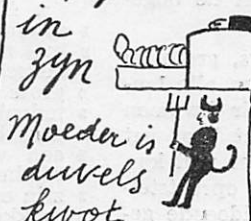 in
zyn
Moeder is
duvels
kwot